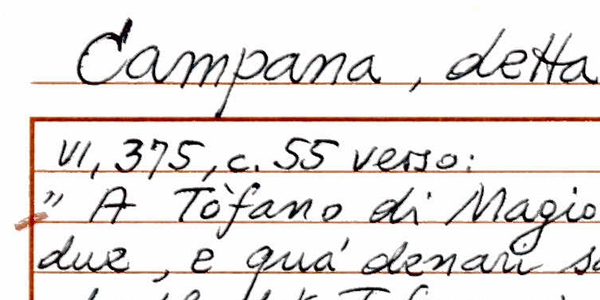 Campana, detta
VI, 375, c. 55 verso:
" A Tòfano di Magio
due, e quá denari